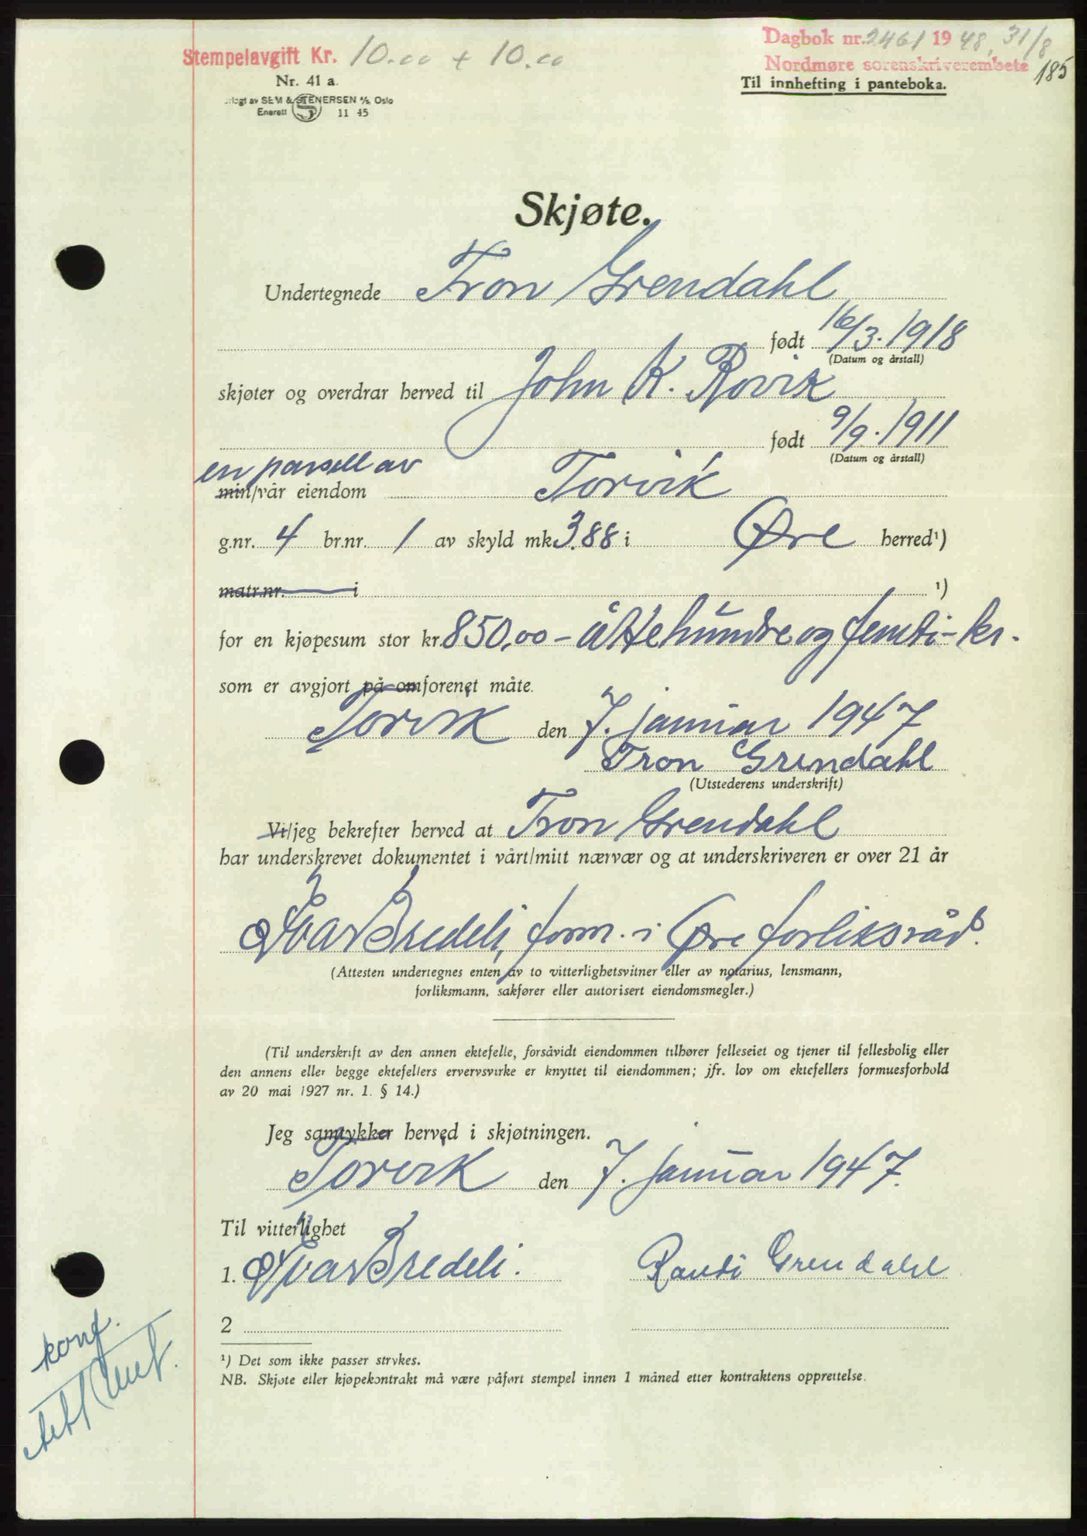 Stempelavgift Kr. 10.00 + 10.00
Dagbok nr. 2461 1948, 31/8
Nordmøre sorenskriverembete
185
Nr. 41 a.
Til innhefting i panteboka.
SEM & STENERSEN A/S, Oslo
Enerett S 11 45
Skjøte.
Undertegnede Tron Grendahl
født 16/3. 1918
(Datum og årstall)
skjøter og overdrar herved til John K. Rovik
født 9/9. 1911
(Datum og årstall)
en parsell av
min/vår eiendom Torvik
g.nr. 4 br.nr. 1 av skyld mk. 3.88 i Øre herred¹)
matr.nr. i ¹)
for en kjøpesum stor kr. 850,00 - åttehundre og femti - kr.
som er avgjort på omforenet måte.
Torvik den 7. januar 1947
Tron Grendahl
(Utstederens underskrift)
Vi/jeg bekrefter herved at Tron Grendahl
har underskrevet dokumentet i vårt/mitt nærvær og at underskriveren er over 21 år
Ivar Bredeli, form. i Øre forliksråd.
(Attesten undertegnes enten av to vitterlighetsvitner eller av notarius, lensmann,
forliksmann, sakfører eller autorisert eiendomsmegler.)
(Til underskrift av den annen ektefelle, forsåvidt eiendommen tilhører felleseiet og tjener til fellesbolig eller
den annens eller begge ektefellers ervervsvirke er knyttet til eiendommen; jfr. lov om ektefellers formuesforhold
av 20 mai 1927 nr. 1. § 14.)
Jeg samtykker herved i skjøtningen.
Torvik den 7. januar 1947.
Til vitterlighet
1. Ivar Bredeli. Randi Grendahl
2
konf.
¹) Det som ikke passer strykes.
NB. Skjøte eller kjøpekontrakt må være påført stempel innen 1 måned etter kontraktens opprettelse.